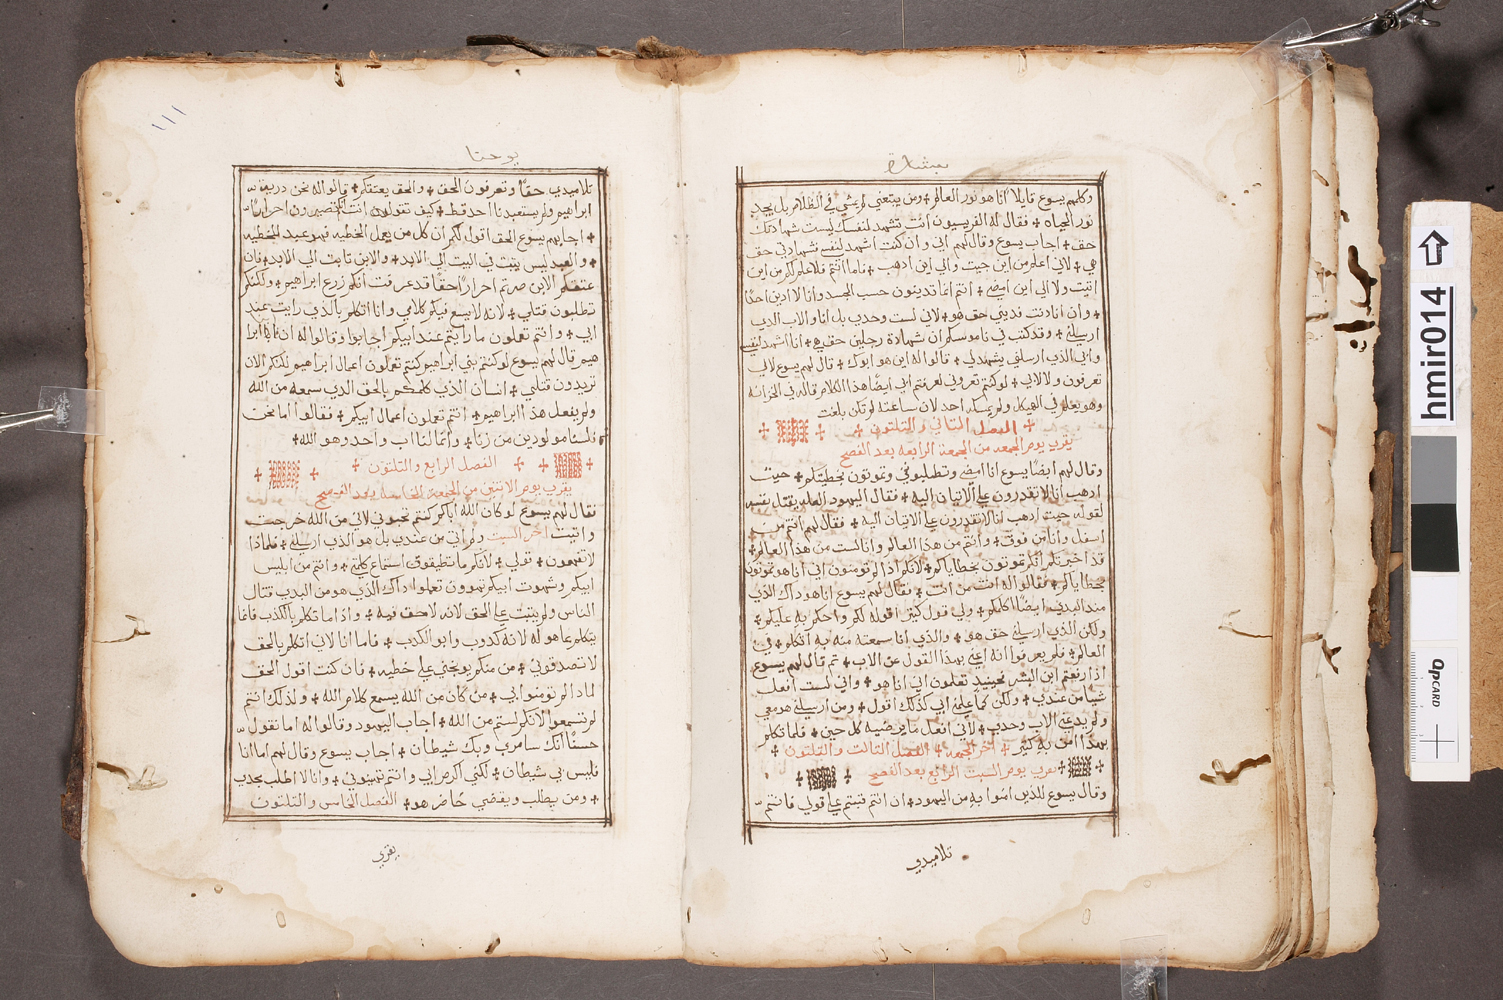 بشارة
وكلمهم يسوع قايلا انا هو نور العالم ومن يتبعني لم يمشي في الظلام بل يجد
نور الحياه فقال له الفريسيون انت تشهد لنفسك ليست شهادتك
حق اجاب يسوع وقال لهم اني وان كنت اشهد لنفسي فشهادتي حق
هي لاني اعلم من اين جيت والي اين ادهب فاما انتم فلا علم لكم من اين
اتيت ولا الي اين امضي انتم انما تدينون حسب الجسد وانا لا ادين احدا
وان انا دنت فديني حق هو لاني لست وحدي بل انا والاب الدي
ارسلني وقد كتب في ناموسكم ان شهادة رجلين حق هي انا اشهد لنفسي
وابي الدي ارسلني يشهد لي قالوا له اين هو ابوك قال لهم يسوع لا لي
تعرفون ولا لابي لو كنتم تعروني لعرفتم ابي ايضا هذا الكلام قاله في الخزانه
وهو يعلم في الهيكل ولم يمسكه احد لان ساعته لم تكن بلغت
الفصل التاني والتلتون
يقرى يوم الجمعه من الجمعة الرابعه بعد الفصح
وقال لهم ايضا يسوع انا امضي وتطلبوني وتموتون بخطيتكم حيث
ادهب انا لا تقدرون علي الاتيان اليه فقال اليهود العله يقتل نفسه
لقوله حيث ادهب انا لا تقدرون علي الاتيان اليه فقال لهم انتم من
اسفل وانا من فوق وانتم من هذا العالم وانا لست من هذا العالم
قد اخبرتكم انكم تموتون بخطاياكم لانكم اذا لم تومنون اني انا هو تموتون
بخطاياكم فقالوا له انت من انت فقال لهم يسوع انا هو داك الذي
مند البدي ايضا اكلمكم ولي قول كثير اقوله لكم واحكم به عليكم
ولكن الذي ارسلني حق هو والذي انا سمعته منه به اتكلم في
العالم فلم يعرفوا انه اعني بهذا القول عن الاب تم قال لهم يسوع
اذا رفعتم ابن البشر فحينيد تعلمون اني انا هو واني لست افعل
شيا من عندي ولكن كما علمني ابي كذلك اقول ومن ارسلني هو معي
ولم يدعني الاب وحدي لاني افعل ما يرضيه كل حين فلما تكلم
بهذا امن به كثير اخر الجمعه الفصل التالت والتلتون
يقرى يوم السبت الرابع بعد الفصح
وقال يسوع للدين امنوا به من اليهود ان انتم تبتم علي قولي فانتم
تلاميدي
١١١
يوحنا
تلاميدي حقا وتعرفون الحق والحق يعتقكم قالوا له نحن درية
ابراهيم ولم يستعبدنا احد قط كيف تقول انت انكم تصيرون احرارا
اجابهم يسوع الحق اقول لكم ان كل من يعمل الخطيه فهو عبد للخطيه
والعبد ليس يتبت في البيت الي الابد والابن تابت الي الابد فان
عتقكم الابن صرتم احرارا حقا قد عرفت انكم زرع ابراهيم ولكنكم
تطلبون قتلي لانه لا يسع فيكم كلامي وانا اتكلم بالذي رايت عند
ابي وانتم تعملون ما رايتم عند ابيكم اجابوا وقالوا له ان ابانا ابرا
هيم قال لهم يسوع لو كنتم بني ابراهيم كنتم تعملون اعمال ابراهيم لكنكم الان
تريدون قتلي انسان الذي كلمكم بالحق الذي سمعه من الله
ولم يفعل هذا ابراهيم انتم تعملون اعمال ابيكم فقالوا اما نحن
فلسنا مولودين من زنا وانما لنا اب واحد وهو الله
الفصل الرابع والتلتون
يقرى يوم الاتنين من الجمعة الخامسة بعد الفصح
فقال لهم يسوع لو كان الله اباكم كنتم تحبوني لاني من الله خرجت
واتيت اخر السبت ولم اتي من عندي بل هو الذي ارسلني فلماذا
لا تفهمون قولي لانكم ما تطيقون استماع كلمتي وانتم من ابليس
ابيكم وشهوت ابيكم تهوون تعملوا داك الذي هو من البدي قتال
الناس ولم يتبت علي الحق لانه لا حق فيه واذا ما تكلم بالكدب فانما
يتكلم بما هو له لانه كدوب وابو الكدب فاما انا لاني اتكلم بالحق
لا تصدقوني من منكم يوبخني علي خطيه فان كنت اقول الحق
لمادا لم تومنوا بي من كان من الله يسمع كلام الله ولذلك انتم
لم تسمعوا لانكم لستم من الله اجاب اليهود وقالوا له اما نقول
حسنا انك سامري وبك شيطان اجاب يسوع وقال لهم اما انا
فليس بي شيطان لكني اكرم ابي وانتم تهينوني وانا لا اطلب مجدي
ومن يطلب ويقضي حاضر هو الفصل الخامس والتلتون
يقري
hmir014